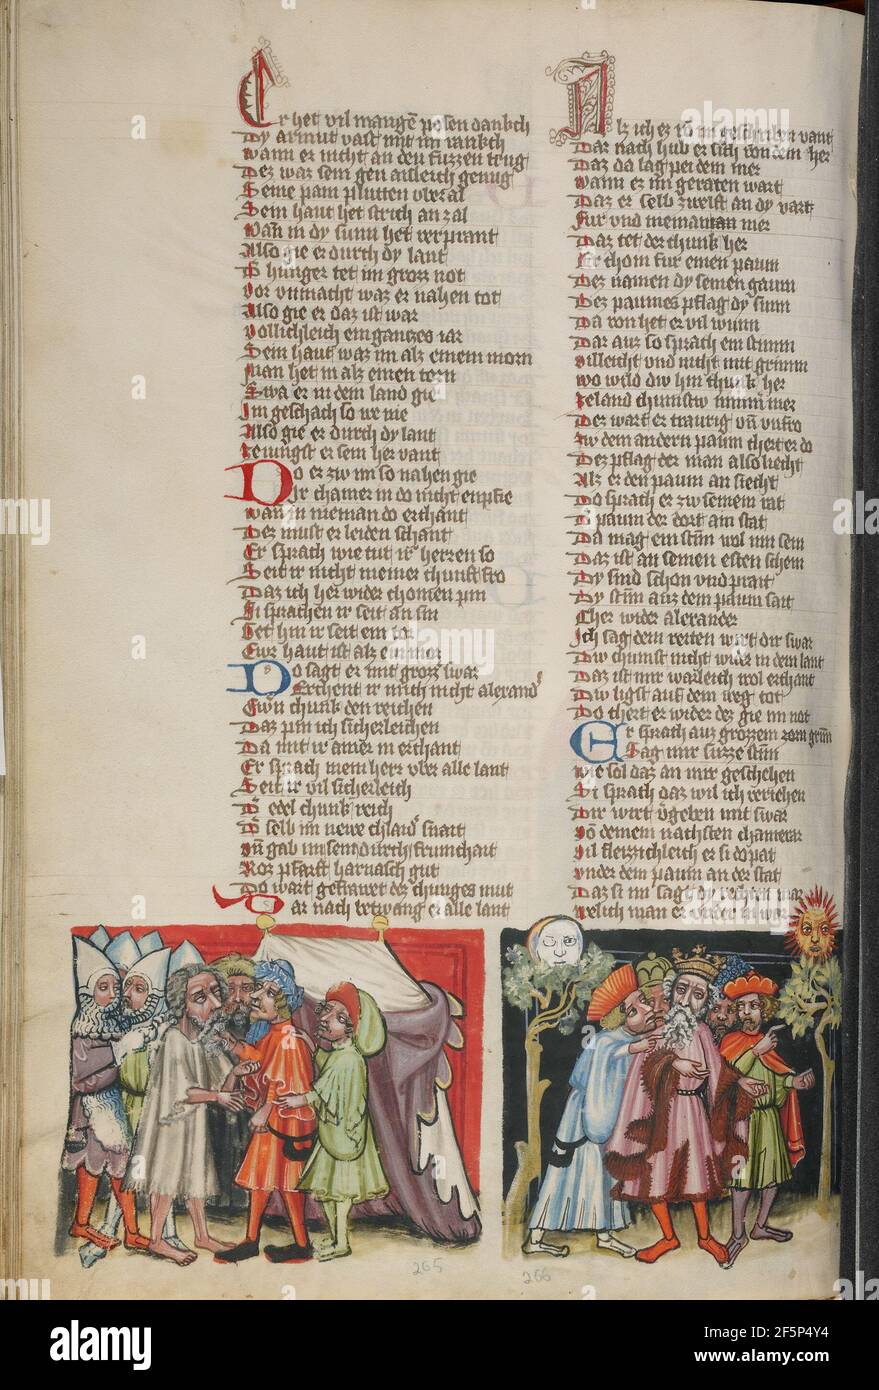 Er het vil mangē posen danckch
Dy armut vast mit im rankch
Wann er nicht an den fuzzen trug
Dez war sein gen aitleich genug
Seine pain plutten vberal
Sein haut het strich an zal
Wañ in dy sunn het verprant
Also gie er durch dy lant
hunger tet im grozz not
Vor vnmacht waz er nahen tot
Also gie er daz ist war
Vollichleich ein ganczes iar
Sein haut waz im alz einem morn
Man het in alz einen torn
Swa er in dem land gie
Im geschach so we nie
Also gie er durch dy lant
ze iungst er sein her vant
Do er zw im so nahen gie
Sir chamer in do nicht enpfie
wañ in nieman do erchant
Der must er leiden schant
Er sprach wie tut ir herren so
Seit ir nicht meiner chunft fro
Daz ich her wider chomen pin
Si sprachen ir seit an sin
Get hin ir seit ein tor
Ewr haut ist alz ein mor
Do sagt er mit grozz swar
Erchent ir mich nicht alexand
Ewrñ chunk den reichen
Daz pin ich sicherleichen
Da mit w amer in erchant
Er sprach mein herr vber alle lant
Seit ir vil sicherleich
edel chunk reich
selb im newe chlaid snait
vñ gab im sein durch frumchait
Roz pfarft harnasch gut
Do wart gefrawet der chunges mut
Dar nach betwang er alle lant
Alz ich ez võ im geschriben vant
Dar nach hub er sich von dem her
Daz da lag pei dem mer
Wann er im geraten wart
Daz er selb zwelft an dy vart
Fur vnd nieman mer
Daz tet der chunk her
Er chom fur einen paum
Dez namen dy seinen gaum
Dez paumes pflag dy sunn
Da von het er vil wunn
Dar auz so sprach ein stimm
villeicht vnd nicht mit grimm
wo wild dw hin chunk her
ze land chumstw nimm̄ mer
Der wart er traurig vñ vnfro
zw dem andern paum chert er do
Dez pflag der man also liecht
Alz er den paum an siecht
Do sprach er zw seinem rat
paum der dort am stat
Da mag ein stim wol inn sein
Daz ist an seinen esten schein
Dy sind schon vnd prait
Dy stim auz dem paum sait
Cher wider alexander
Ich sag dem reiten wirt dir swar
Dw chumst nicht wider in dem lant
Daz ist mir warleich wol erchant
Dw ligst auf dem weg tot
Do chert er wider dez gie im not
Er sprach auz grozzem zorn grim
Sag mir suzze stim
wie sol daz an mir geschehen
Si sprach daz wil ich veriehen
Dir wirt v̄geben mit swar
võ deinem nachsten chamerar
Vil fleizzichleich er si do pat
vnder dem paum an der stat
Daz si im sagt dy rechten mar
welich man er vnder in war
265
266
alamy
Image ID: 2F5P4Y4
www.alamy.com